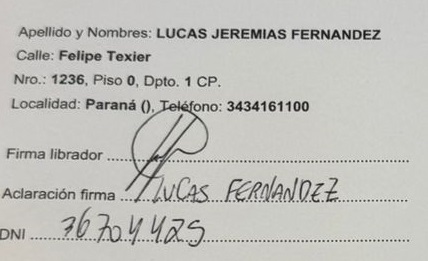 Apellido y Nombres: LUCAS JEREMIAS FERNANDEZ
Calle: Felipe Texier
Nro.: 1236, Piso 0, Dpto. 1 CP.
Localidad: Paraná (), Teléfono: 3434161100
Firma librador
Aclaración firma LUCAS FERNANDEZ
DNI 36704425